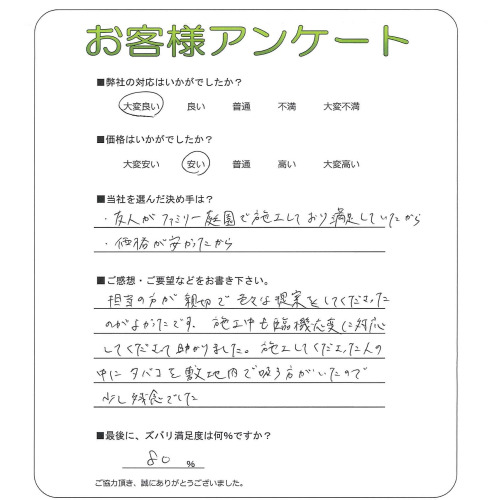 お客様アンケート
■弊社の対応はいかがでしたか?
大変良い 良い 普通 不満 大変不満
■価格はいかがでしたか?
大変安い 安い 普通 高い 大変高い
■当社を選んだ決め手は?
・友人がファミリー庭園で施工しており満足していたから
・価格が安かったから
■ご感想・ご要望などをお書き下さい。
担当の方が親切で色々な提案をしてくださった
のがよかったです。施工中も臨機応変に対応
してくださって助かりました。施工してくださった人の
中にタバコを敷地内で吸う方がいたので
少し残念でした
■最後に、ズバリ満足度は何%ですか?
80 %
ご協力頂き、誠にありがとうございました。